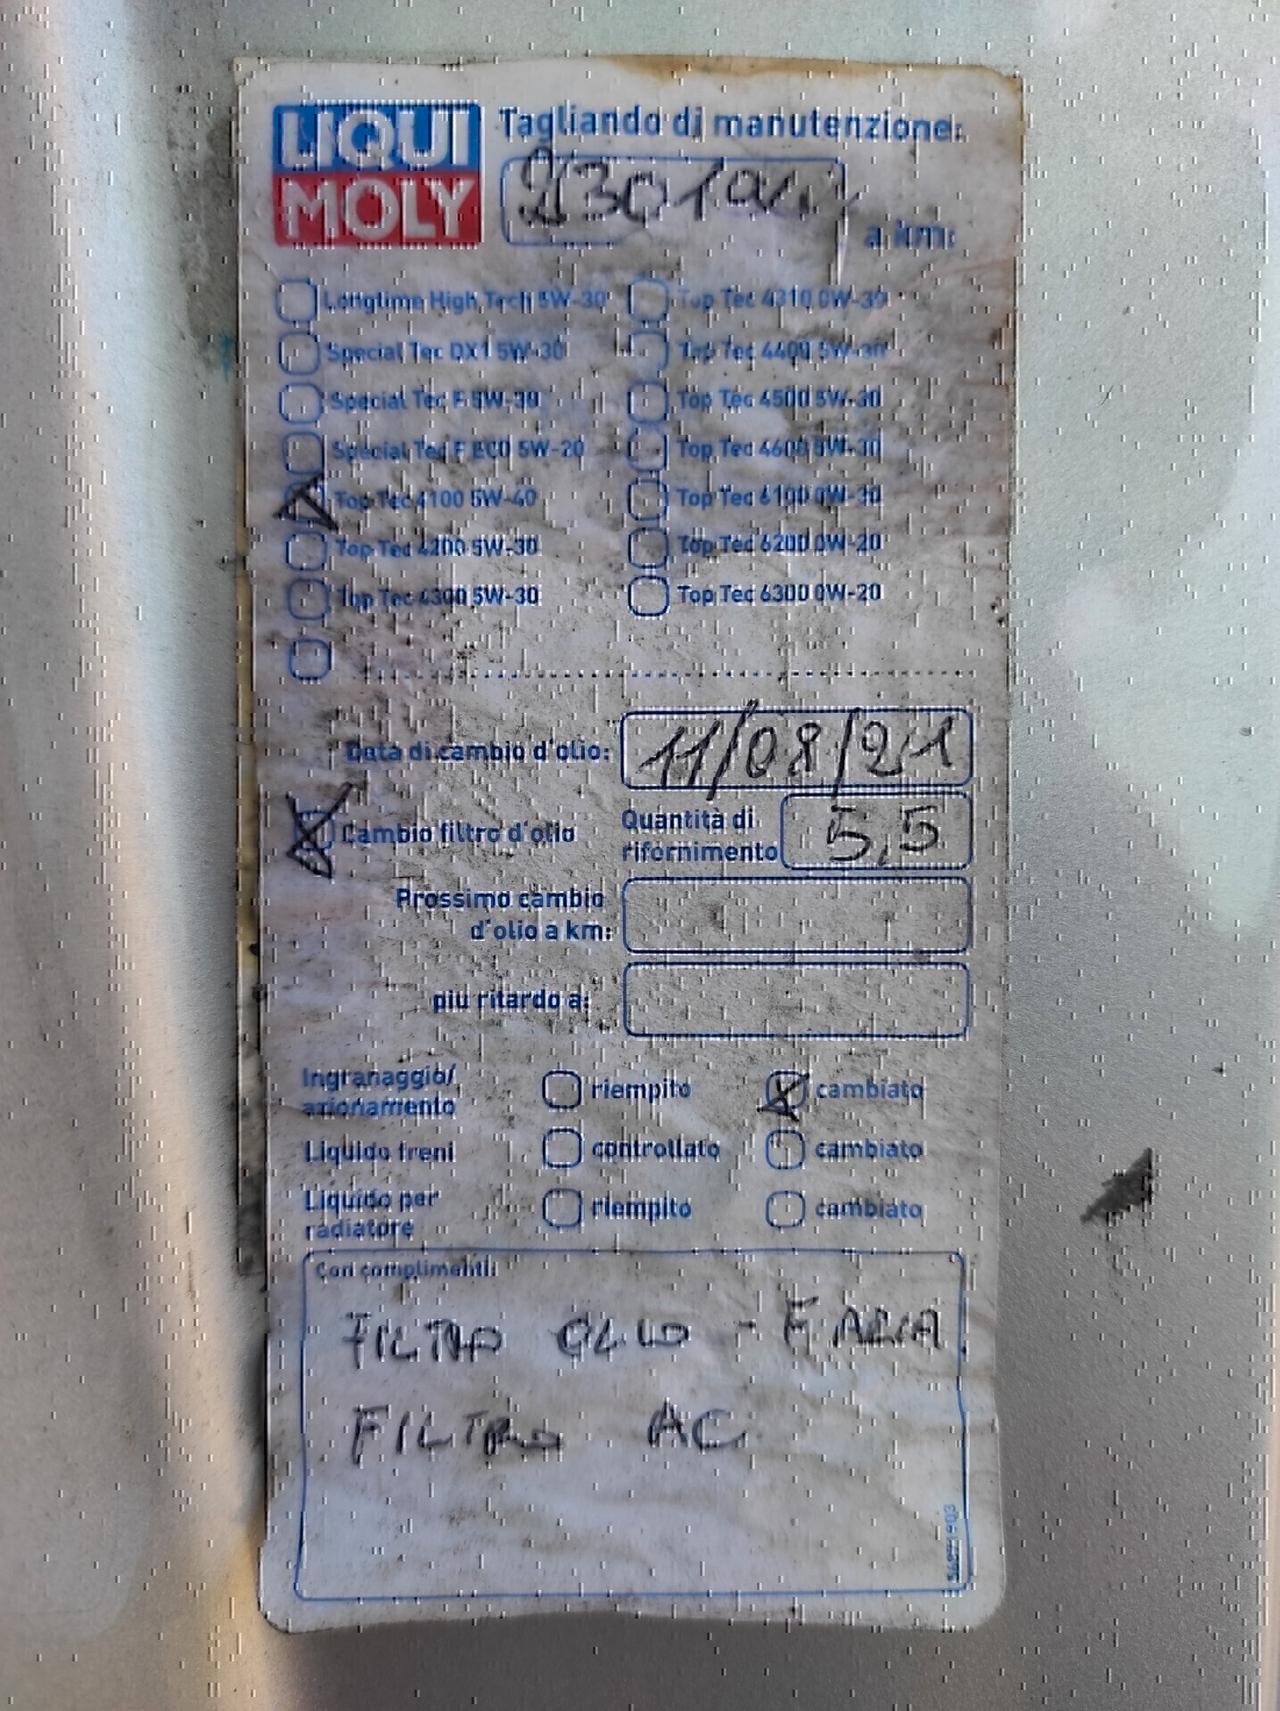 LIQUI
MOLY
Tagliando di manutenzione:
a km:
Longtime High Tech 5W-30
Top Tec 4310 0W-30
Special Tec DX1 5W-30
Top Tec 4400 5W-30
Special Tec F 5W-30
Top Tec 4500 5W-30
Special Tec F ECO 5W-20
Top Tec 4600 5W-30
Top Tec 4100 5W-40
Top Tec 6100 0W-30
Top Tec 4200 5W-30
Top Tec 6200 0W-20
Top Tec 4300 5W-30
Top Tec 6300 0W-20
Data di cambio d'olio: 11/08/21
Cambio filtro d'olio
Quantità di
rifornimento 5,5
Prossimo cambio
d'olio a km:
piu ritardo a:
Ingranaggio/
azionamento
riempito cambiato
Liquido freni controllato cambiato
Liquido per
radiatore
riempito cambiato
Con complimenti:
FILTRO OLIO - F ARIA
FILTRO AC